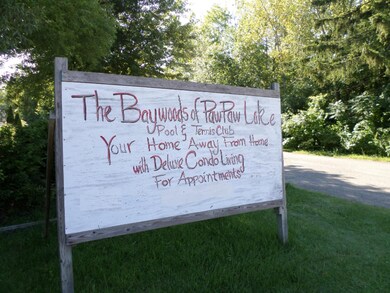 The Baywoods of PawPaw Lake
Pool & Tennis Club
Your Home Away From Home
with Deluxe Condo Living
For Appointments